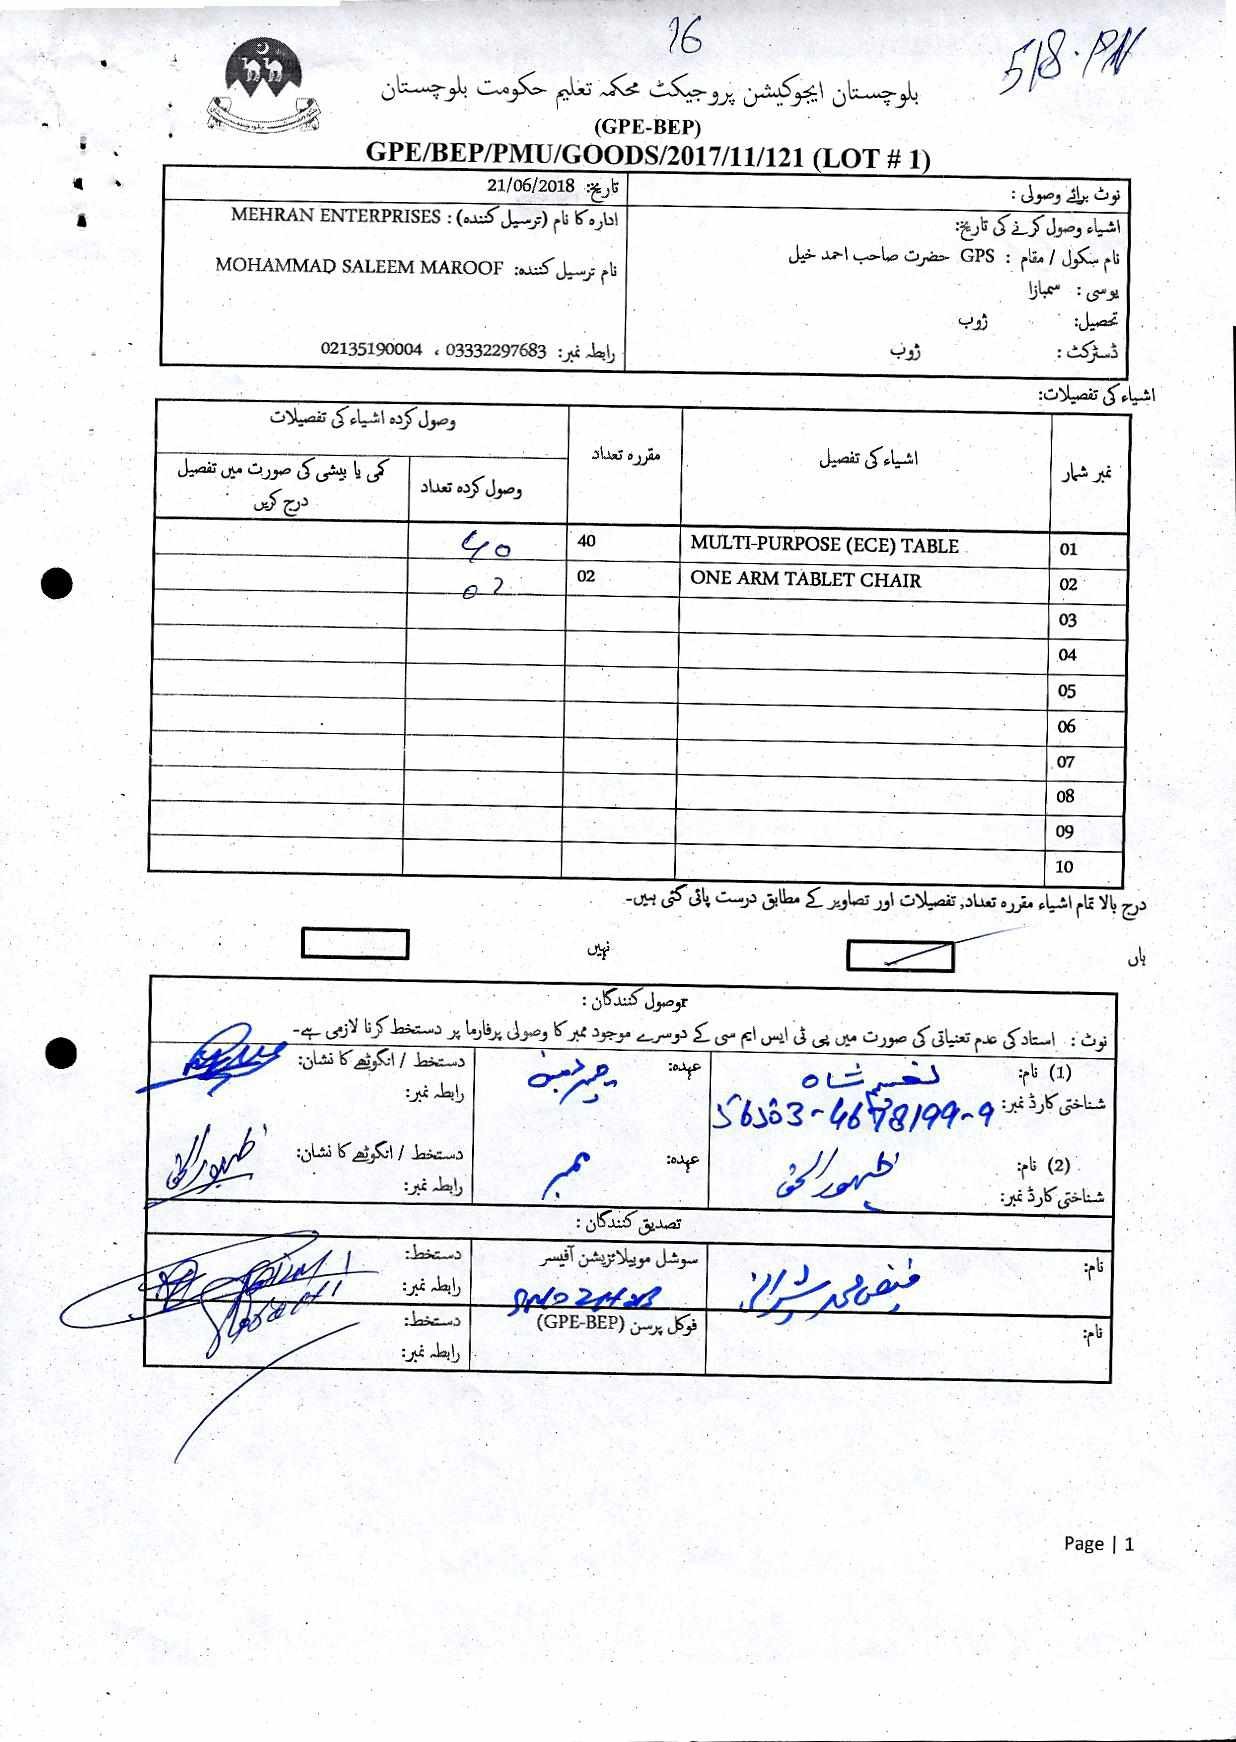 16
بلوچستان ایجوکیشن پروجیکٹ محکمہ تعلیم حکومت بلوچستان
(GPE-BEP)
GPE/BEP/PMU/GOODS/2017/11/121 (LOT # 1)
نوٹ برائے وصولی :
تاریخ: 21/06/2018
اشیاء وصول کرنے کی تاریخ:
نام سکول / مقام : GPS حضرت صاحب احمد خیل
یوسی : سمبازا
تحصیل: ژوب
ڈسٹرکٹ : ژوب
ادارہ کا نام (ترسیل کنندہ) : MEHRAN ENTERPRISES
نام ترسیل کنندہ: MOHAMMAD SALEEM MAROOF
رابطہ نمبر: 03332297683 ، 02135190004
اشیاء کی تفصیلات:
نمبر شمار
اشیاء کی تفصیل
مقررہ تعداد
وصول کردہ اشیاء کی تفصیلات
وصول کردہ تعداد
کمی یا بیشی کی صورت میں تفصیل
درج کریں
01 MULTI-PURPOSE (ECE) TABLE 40 40
02 ONE ARM TABLET CHAIR 02 02
03
04
05
06
07
08
09
10
درج بالا تمام اشیاء مقررہ تعداد, تفصیلات اور تصاویر کے مطابق درست پائی گئی ہیں۔
ہاں
نہیں
وصول کنندگان :
نوٹ : استاد کی عدم تعنیاتی کی صورت میں پی ٹی ایس ایم سی کے دوسرے موجود ممبر کا وصولی پرفارما پر دستخط کرنا لازمی ہے۔
(1) نام: شاہ
عہدہ: چیرمین
دستخط / انگوٹھے کا نشان:
شناختی کارڈ نمبر:
رابطہ نمبر:
(2) نام: ظہور الحق
عہدہ: ممبر
دستخط / انگوٹھے کا نشان: ظہور الحق
شناختی کارڈ نمبر:
رابطہ نمبر:
تصدیق کنندگان :
نام:
سوشل موبیلائزیشن آفیسر
دستخط:
رابطہ نمبر:
نام:
فوکل پرسن (GPE-BEP)
دستخط:
رابطہ نمبر:
Page | 1